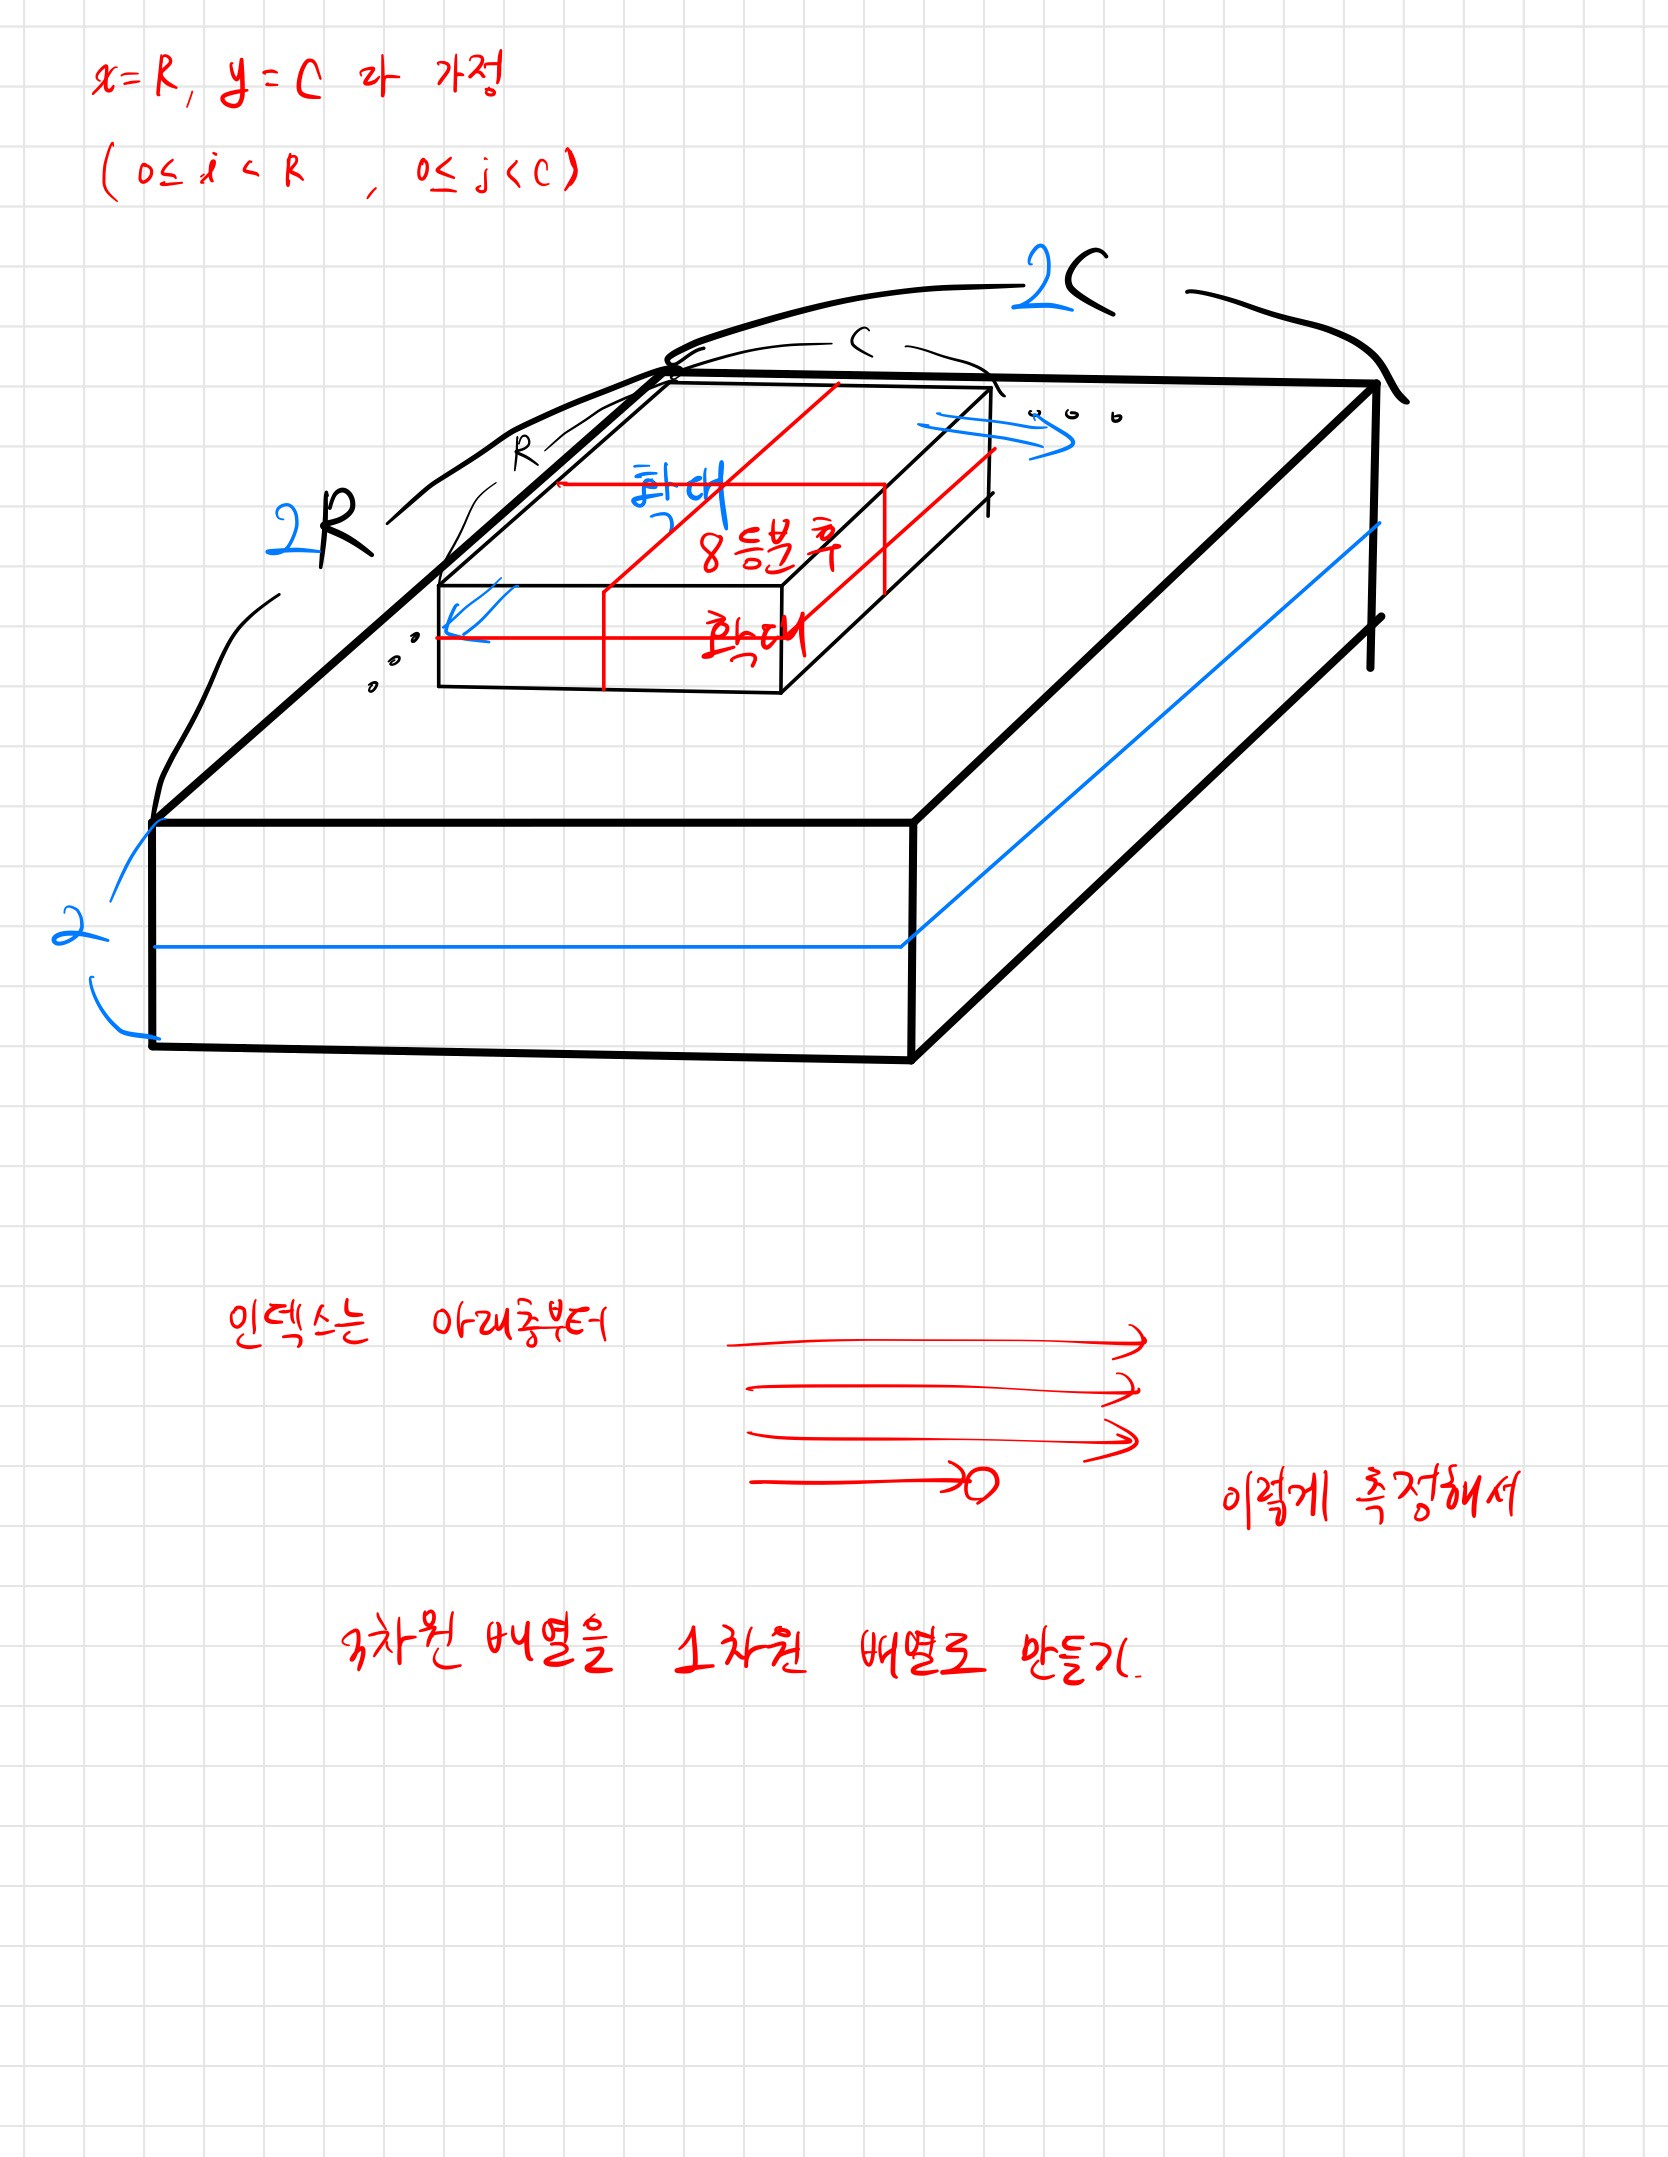 x=R, y=C 라 가정
(0≤ i < R , 0≤ j < C)
2C
C
R
2R
확대
8등분 후
확대
2
인덱스는 아래층부터
이렇게 측정해서
3차원 배열을 1차원 배열로 만들기.